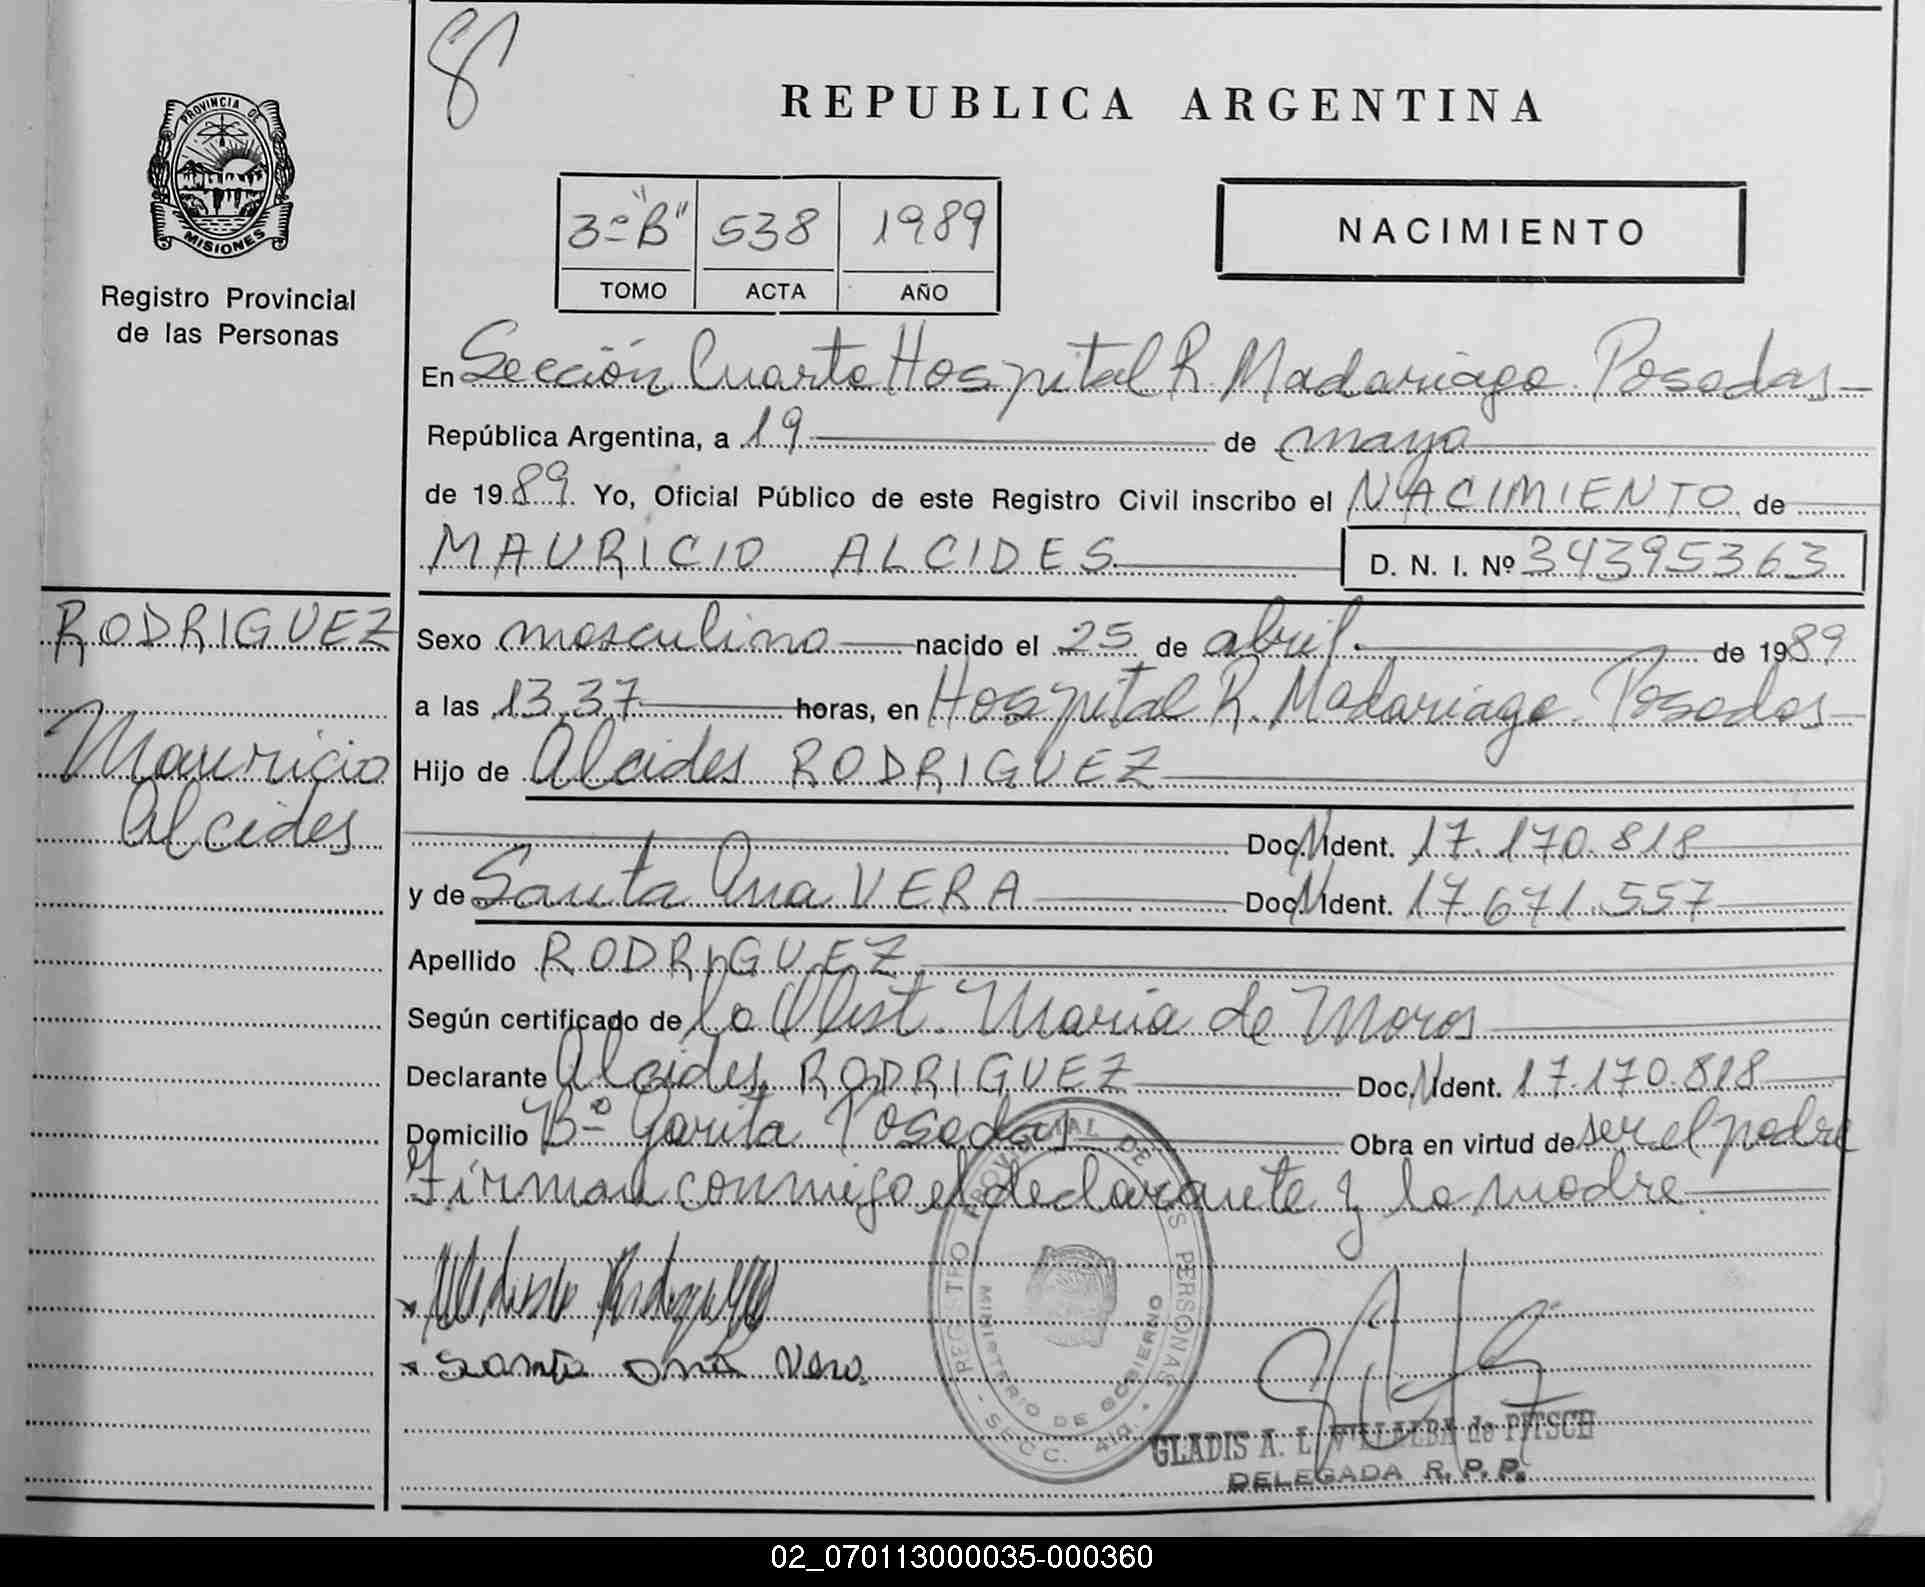 8
PROVINCIA DE
MISIONES
Registro Provincial
de las Personas
REPUBLICA ARGENTINA
3º "B" 538 1989
TOMO ACTA AÑO
NACIMIENTO
En Sección Cuarta Hospital R. Madariaga. Posadas
República Argentina, a 19 de mayo
de 1989 Yo, Oficial Público de este Registro Civil inscribo el NACIMIENTO de
MAURICIO ALCIDES D. N. I. Nº 34395363
RODRIGUEZ
Mauricio
Alcides
Sexo masculino nacido el 25 de abril de 1989
a las 13,37 horas, en Hospital R. Madariaga. Posadas
Hijo de Alcides RODRIGUEZ
Doc. N Ident. 17.170.818
y de Santa Ana VERA Doc. N Ident. 17.671.557
Apellido RODRIGUEZ
Según certificado de la Obst. Maria de Moros
Declarante Alcides RODRIGUEZ Doc. N Ident. 17.170.818
Domicilio Bº Garita Posadas Obra en virtud de ser el padre
Firman conmigo el declarante y la madre
Santa Ana Vera
REGISTRO PROVINCIAL DE LAS PERSONAS
MINISTERIO DE GOBIERNO
- SECC. 4ta. -
GLADIS A. L. VILLALBA de PITSCH
DELEGADA R. P. P.
02_070113000035-000360